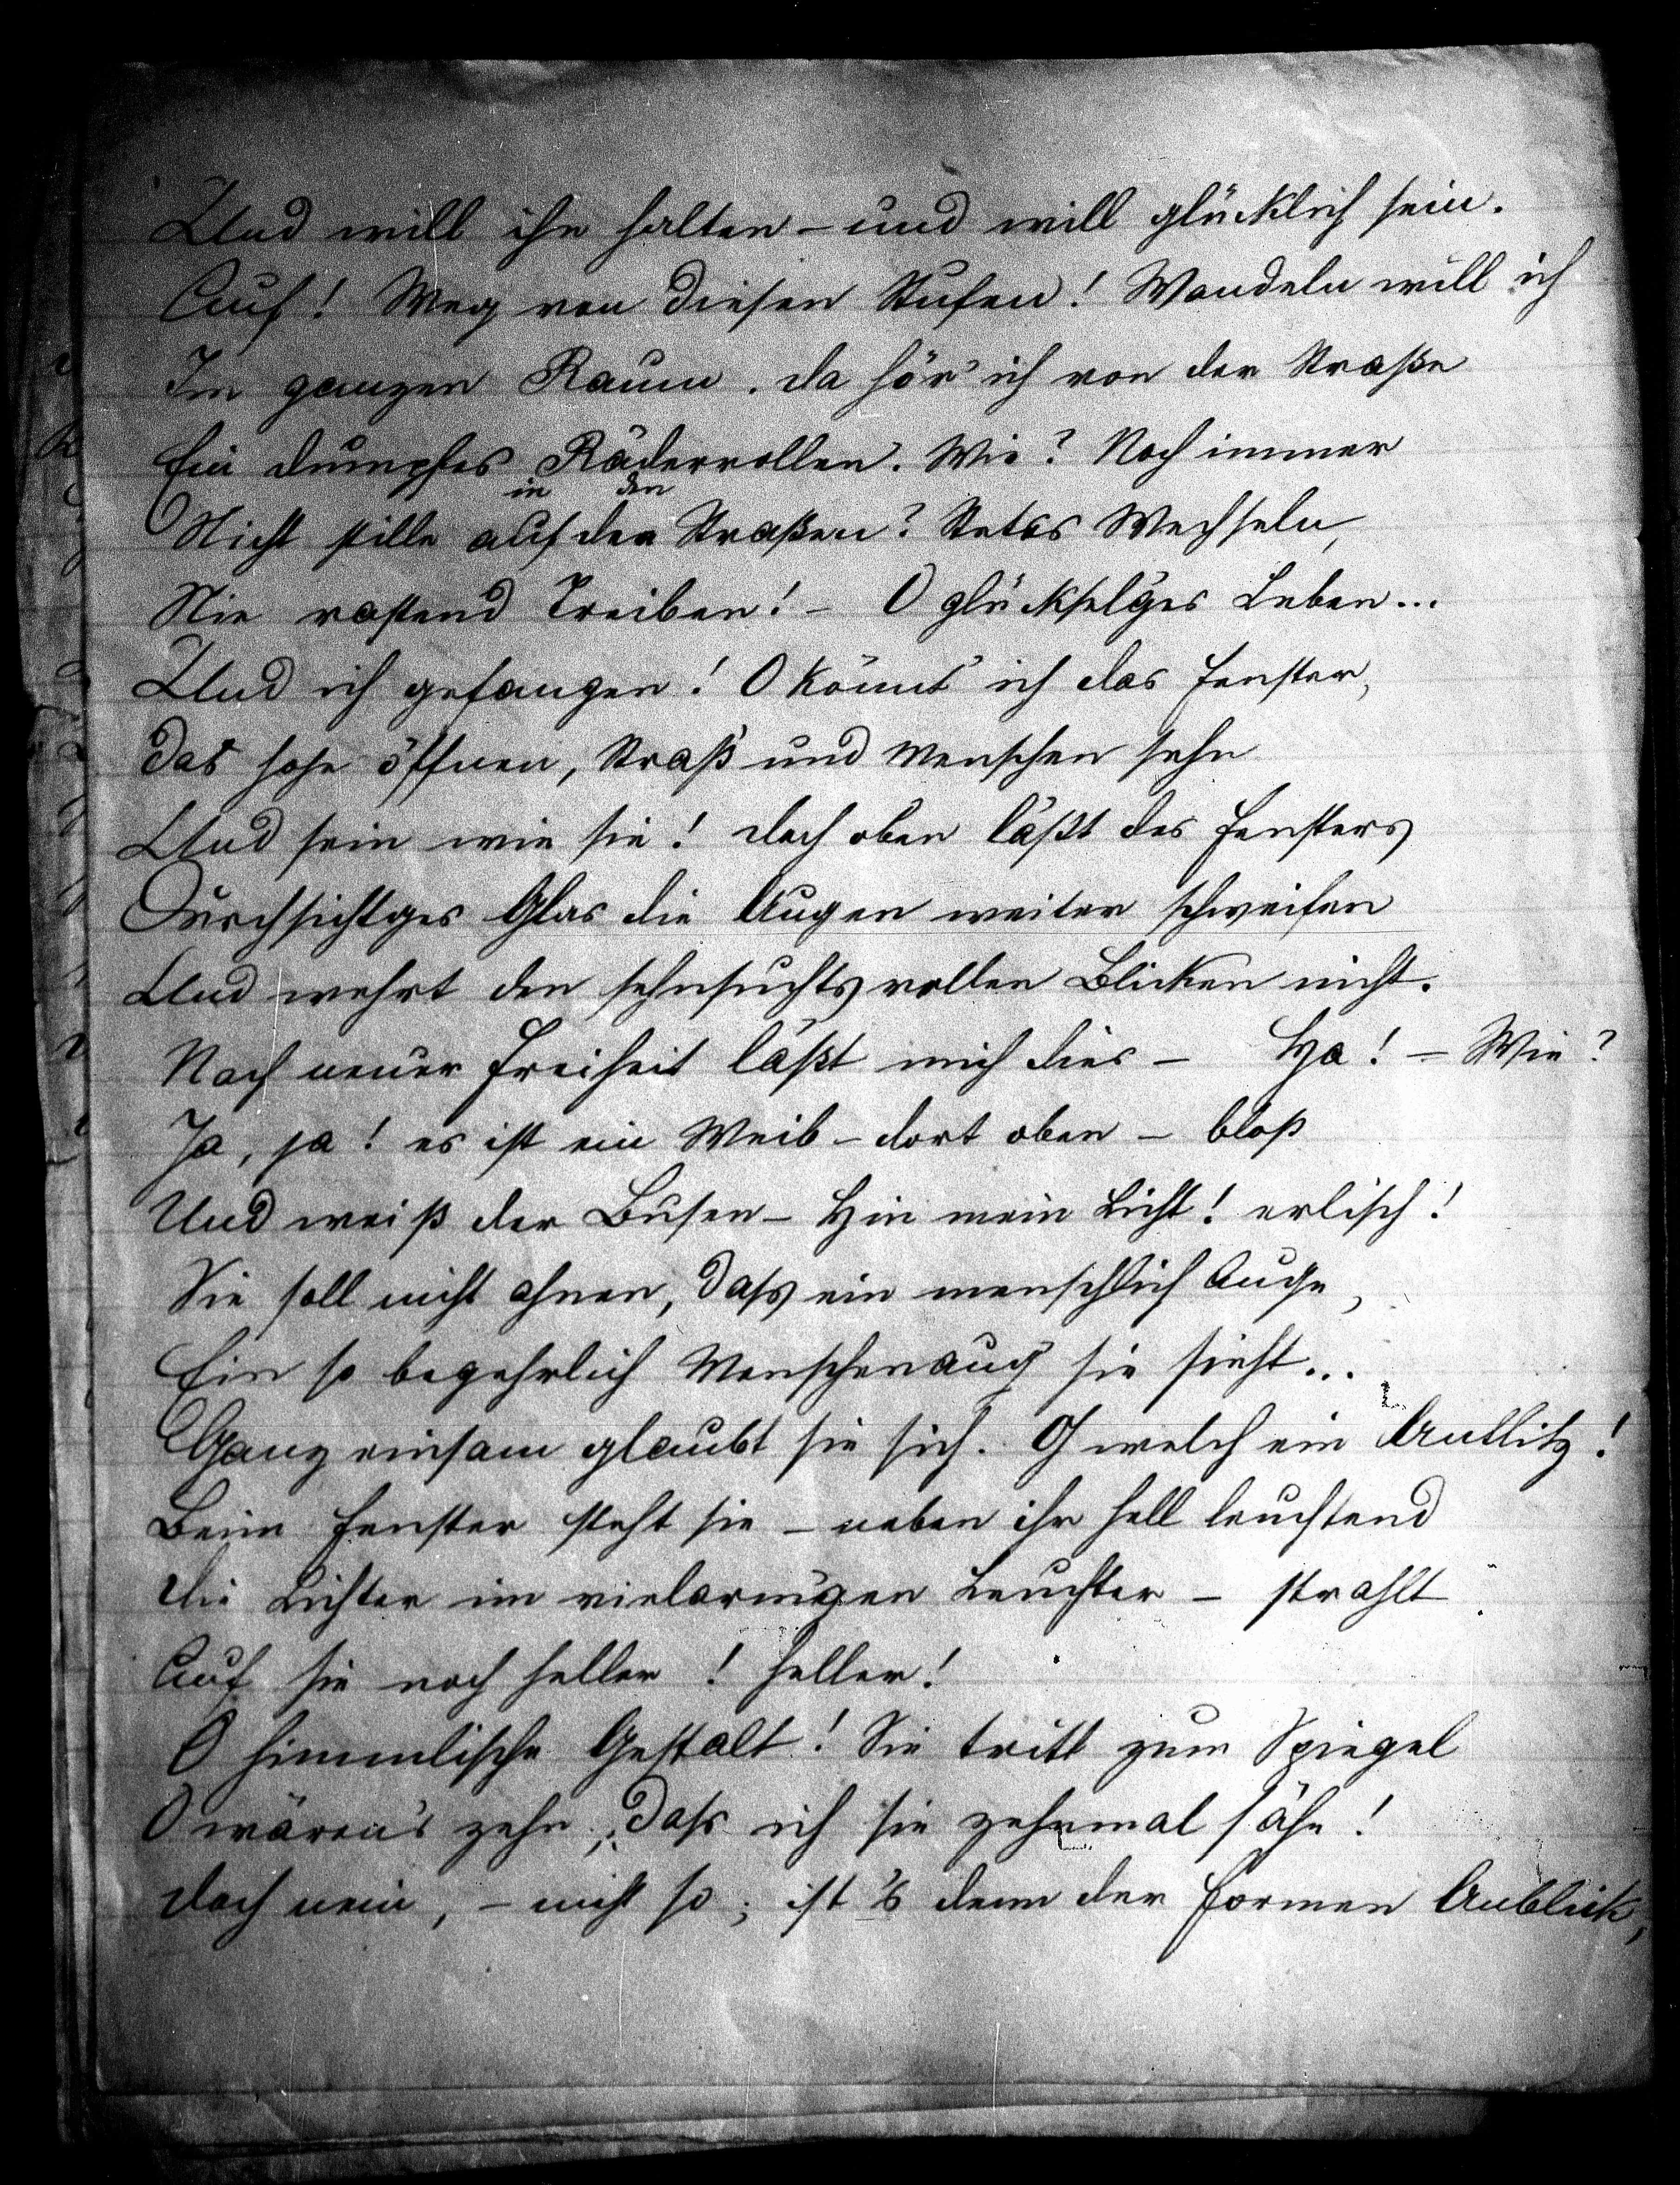 Und will ihn halten – und will glücklich sein.
Auf! Weg von diesen Stufen! Wandeln will ich
Im ganzen Raum. Da hör' ich von der Straße
Ein dumpfes Räderrollen. Wie? Noch immer
in den
Nicht stille auf den Straßen? Stetes Wechseln,
Nie rastend Treiben! – O glücksel'ges Leben...
Und ich gefangen! O könnt' ich das Fenster,
Das hohe öffnen, Straß' und Menschen sehn
Und sein wie sie! Doch oben läßt des Fensters
Durchsichtges Glas die Augen weiter schweifen
Und wehrt den sehnsuchtsvollen Blicken nicht.
Nach neuer Freiheit läßt mich dies – Ha! – Wie?
Ja, ja! es ist ein Weib – dort oben – bloß
Und weiß der Busen – Hin mein Licht! erlisch!
Sie soll nicht ahnen, dass ein menschlich Auge,
Ein so begehrlich Menschenaug' sie sieht...
Ganz einsam glaubt sie sich. O welch ein Antlitz!
Beim Fenster steht sie – neben ihr hell leuchtend
Die Lichter im vielarmigen Leuchter – strahlt
Auf sie noch heller! heller!
O himmlische Gestalt! Sie tritt zum Spiegel
O wären's zehn, dass ich sie zehnmal sähe!
Doch nein, – nicht so; ist 's denn der Formen Anblick,